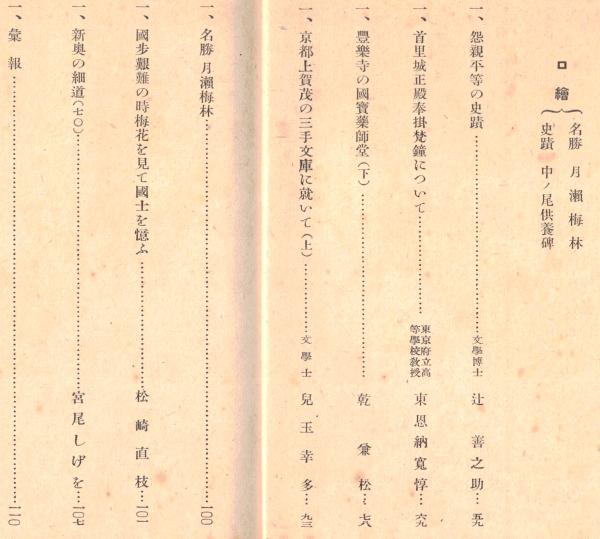 口繪{名勝 月瀨梅林
史蹟 中ノ尾供養碑
一、怨親平等の史蹟……………文學博士 辻善之助…五九
一、首里城正殿奉掛梵鐘について……………東京府立高等學校敎授 東恩納寬惇…六九
一、豐樂寺の國寶藥師堂(下)……………乾兼松…七八
一、京都上賀茂の三手文庫に就いて(上)……………文學士 兒玉幸多…九三
一、名勝月瀨梅林……………一〇〇
一、國步艱難の時梅花を見て國士を憶ふ……………松崎直枝…一〇一
一、新奥の細道(七〇)……………宮尾しげを…一〇七
一、彙報……………一一〇